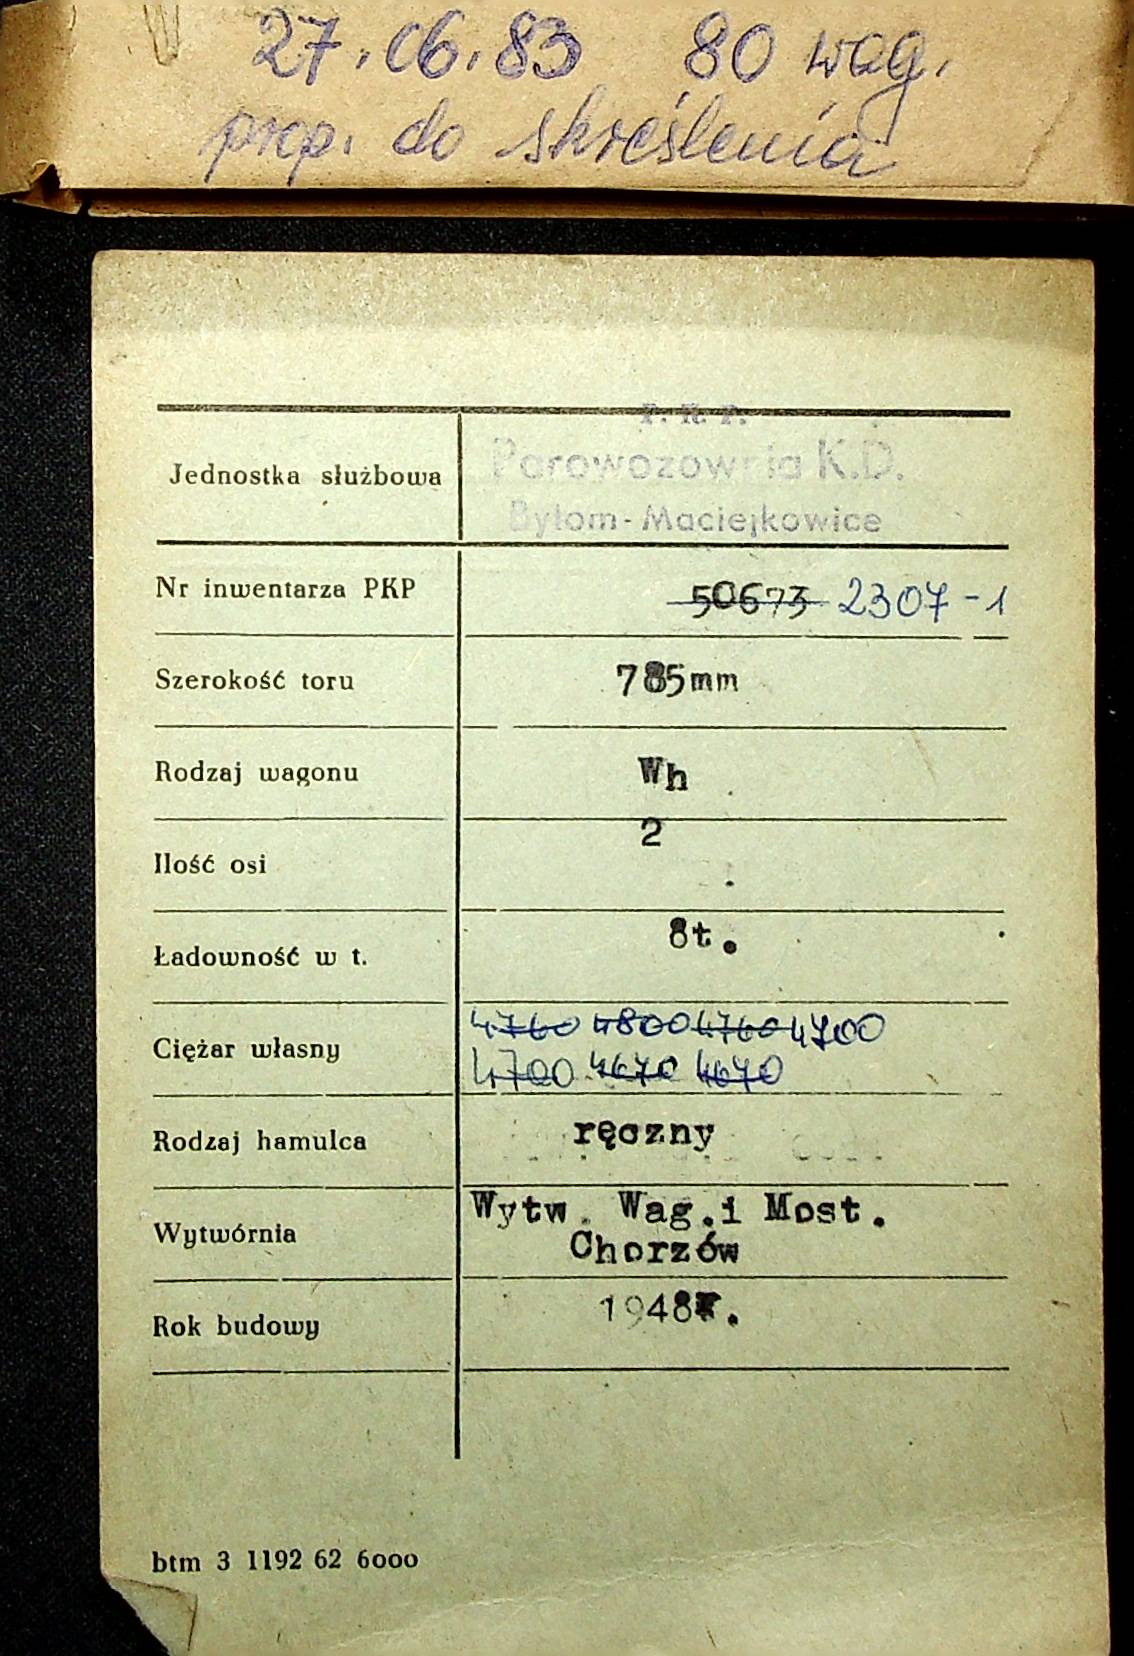 27.06.83 80 wag.
prop. do skreślenia
P. K. P.
Jednostka służbowa Parowozownia K.D.
Bytom-Maciejkowice
Nr inwentarza PKP 50673 2307-1
Szerokość toru 785mm
Rodzaj wagonu Wh
Ilość osi 2
Ładowność w t. 8t.
Ciężar własny 4760 4800 4760 4700
4700 4670 4670
Rodzaj hamulca ręczny
Wytwórnia Wytw. Wag.i Most.
Chorzów
Rok budowy 1948r.
btm 3 1192 62 6000